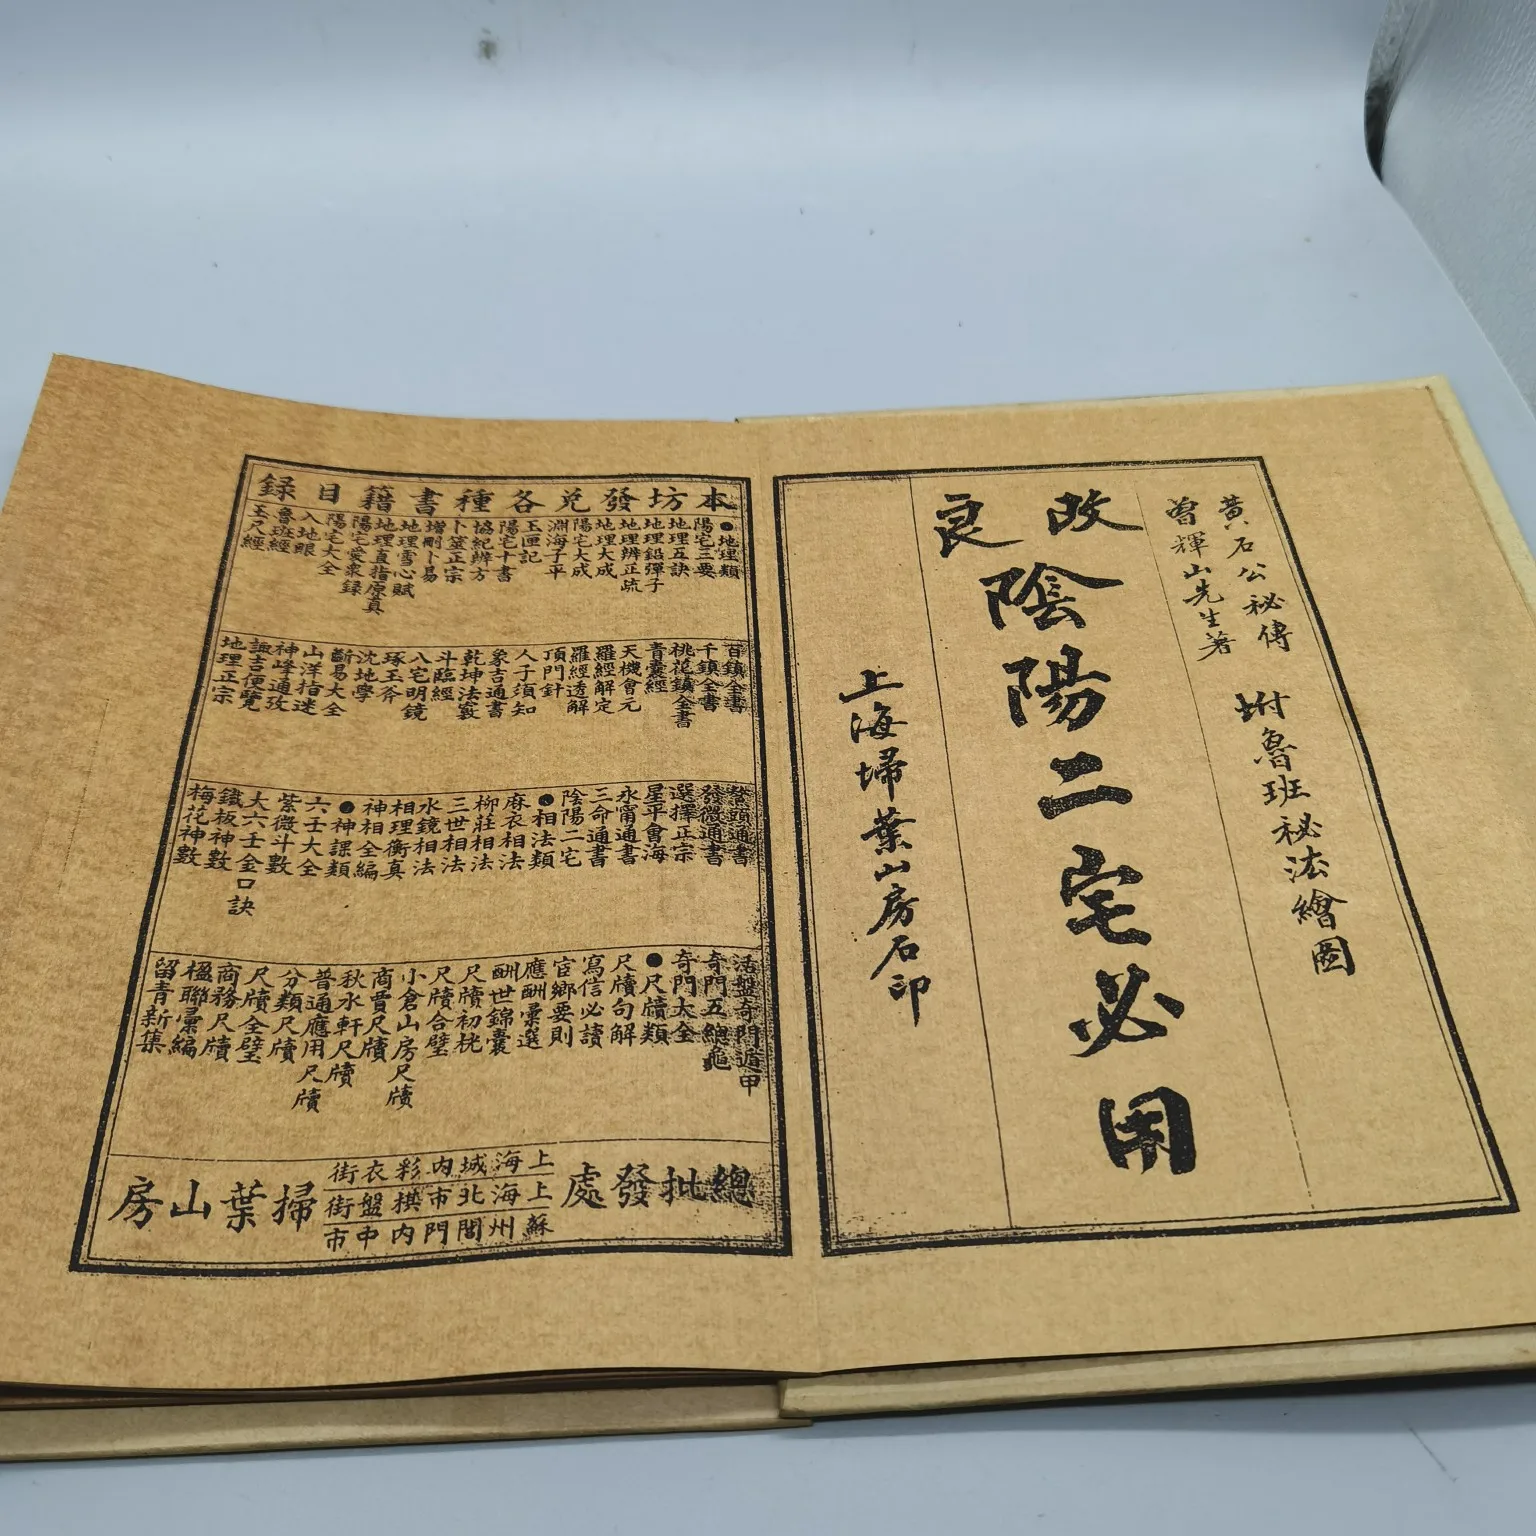 黃石公秘傳
曾輝山先生著
坿魯班秘法繪圖
改良
陰陽二宅必用
上海埽葉山房石印
本坊發兌各種書籍目錄
●地理類
陽宅三要
地理五訣
地理鉛彈子
地理辨正疏
地理大成
陽宅大成
淵海子平
玉匣記
陽宅十書
協紀辨方
卜筮正宗
增刪卜易
地理雪心賦
地理直指原真
陽宅愛眾錄
陽宅大全
入地眼
魯班經
玉尺經
百鎮全書
千鎮全書
桃花鎮全書
青囊經
天機會元
羅經解定
羅經透解
頂門針
人子須知
象吉通書
乾坤法竅
斗臨經
八宅明鏡
琢玉斧
沈地學
斷易大全
山洋指迷
神峰通攷
諏吉便覽
地理正宗
鰲頭通書
發微通書
選擇正宗
星平會海
永甯通書
三命通書
陰陽二宅
●相法類
麻衣相法
柳莊相法
三世相法
水鏡相法
相理衡真
神相全編
●神課類
六壬大全
紫微斗數
大六壬金口訣
鐵板神數
梅花神數
活盤奇門遁甲
奇門五總龜
奇門大全
●尺牘類
尺牘句解
寫信必讀
宦鄉要則
應酬彙選
酬世錦囊
尺牘初桄
尺牘合璧
小倉山房尺牘
商賈尺牘
秋水軒尺牘
普通應用尺牘
分類尺牘
尺牘全璧
商務尺牘
楹聯彙編
留青新集
總批發處
上海城內彩衣街
上海北市棋盤街
蘇州閶門內中市
掃葉山房